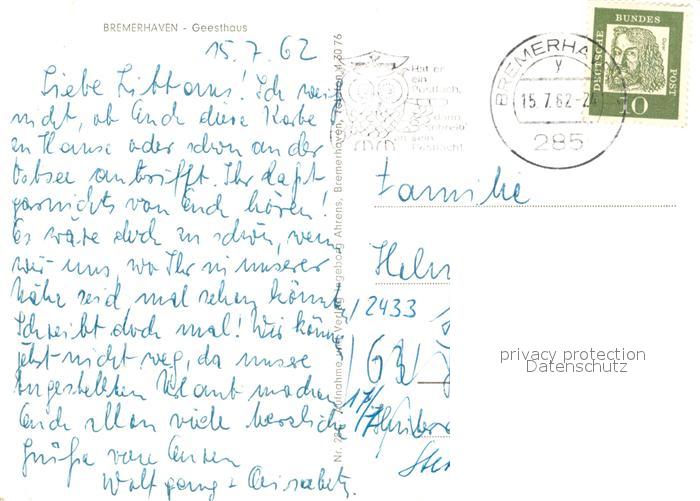 BREMERHAVEN - Geesthaus
15.7.62
Liebe ! Ich weiß
nicht, ob Euch diese Karte
zu Hause oder schon an der
Ostsee antrifft. Ihr laßt
garnichts von Euch hören!
Es wäre doch zu schön, wenn
wir uns, wo Ihr in unserer
Nähe seid mal sehen könnt
Schreibt doch mal! Wir könn
jetzt nicht weg, da unsere
Angestellten Urlaub machen
Euch allen viele herzliche
Grüße von Euren
Wolfgang + Elisabeth.
Nr. Aufnahme und Verlag Ingeborg Ahrens, Bremerhaven, Telefon 4 30 76
Hat er
ein
Postfach,
dann
schreib
sein
Postfach!
BREMERHAVEN
y
15.7.62-24
285
DEUTSCHE
BUNDES
POST
10
Familie
Helm
2433
163
17/7
privacy protection
Datenschutz